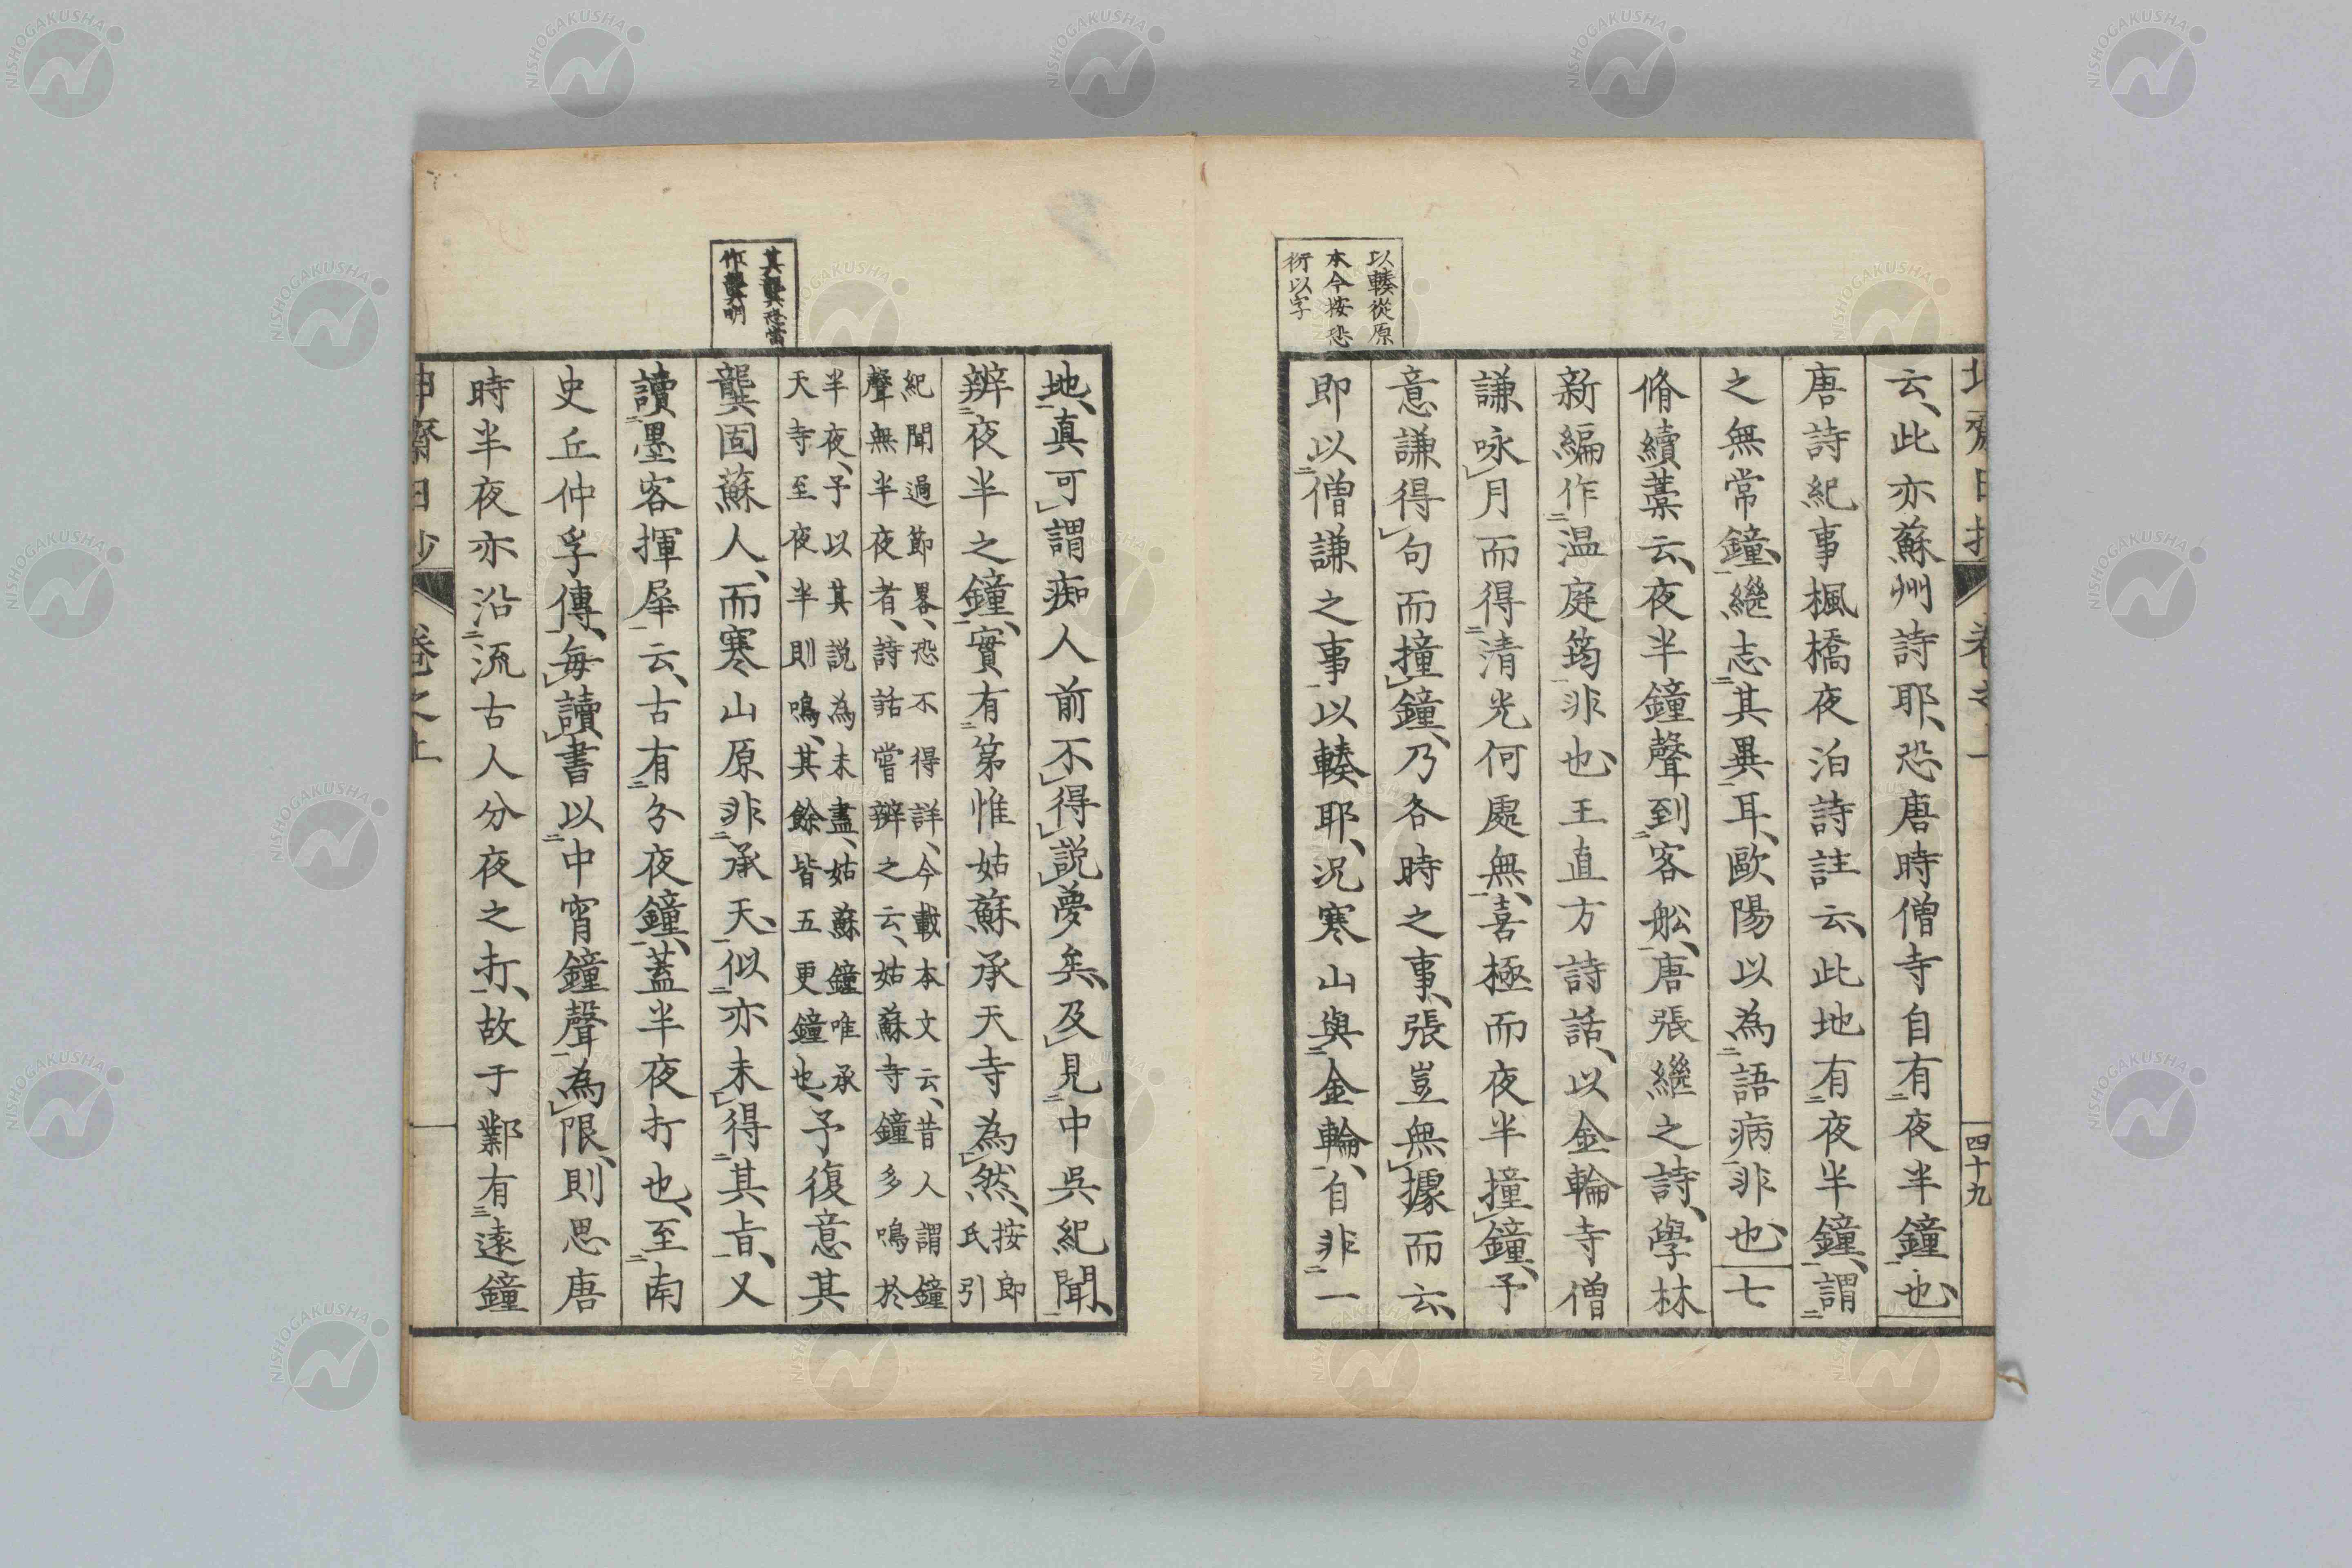 以轃從原
本今按恐
衍以字
四十九
云、此亦蘇州詩耶、恐唐時僧寺自有二夜半鐘一也、
唐詩紀事楓橋夜泊詩註云、此地有二夜半鐘一、謂二
之無常鐘一、繼志二其異一耳、歐陽以為二語病一非也、七
脩續藁云、夜半鐘聲到二客船一、唐張繼之詩、學林
新編作二温庭筠一非也、王直方詩話、以金輪寺僧
謙、咏レ月而得二清光何處無一、喜極而夜半撞レ鐘、予
意謙得レ句而撞レ鐘、乃各時之事、張豈無レ據而云、
即以二僧謙之事一以轃耶、况寒山與二金輪一、自非二一
其龔恐當
作龔明
地一、真可レ謂痴人前不レ得レ説レ夢矣、及レ見二中吳紀聞一、
辨二夜半之鐘一、實有二第惟姑蘇承天寺為レ然、按即
氏引
紀聞過節畧、恐不得詳、今載本文云、昔人謂鐘
聲無半夜者、詩話嘗辨之云、姑蘇寺鐘多鳴於
半夜、予以其説為未盡、姑蘇鐘唯承
天寺至夜半則鳴、其餘皆五更鐘也、予復意其
龔固蘇人、而寒山原非二承天一、似二亦未レ得二其旨一、又
讀二墨客揮犀一云、古有二分夜鐘一、蓋半夜打也、至二南
史丘仲孚傳一、每レ讀レ書以二中宵鐘聲一為レ限、則思唐
時半夜亦沿二流古人分夜之打一、故于鄴有三遠鐘
卷之上